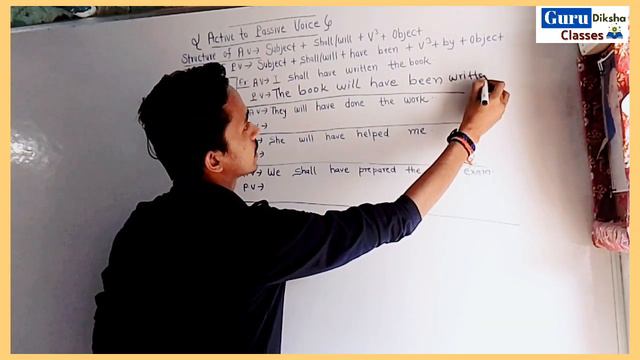 Guru Diksha
Classes
Active to Passive Voice
Structure of A.V → Subject + Shall/will + V³ + Object
P.V → Subject + Shall/will + have been + V³ + by + Object
Ex: A.V → I shall have written the book
P.V → The book will have been writte
A.V → They will have done the work
She will have helped me
We shall have prepared the exam
P.V →